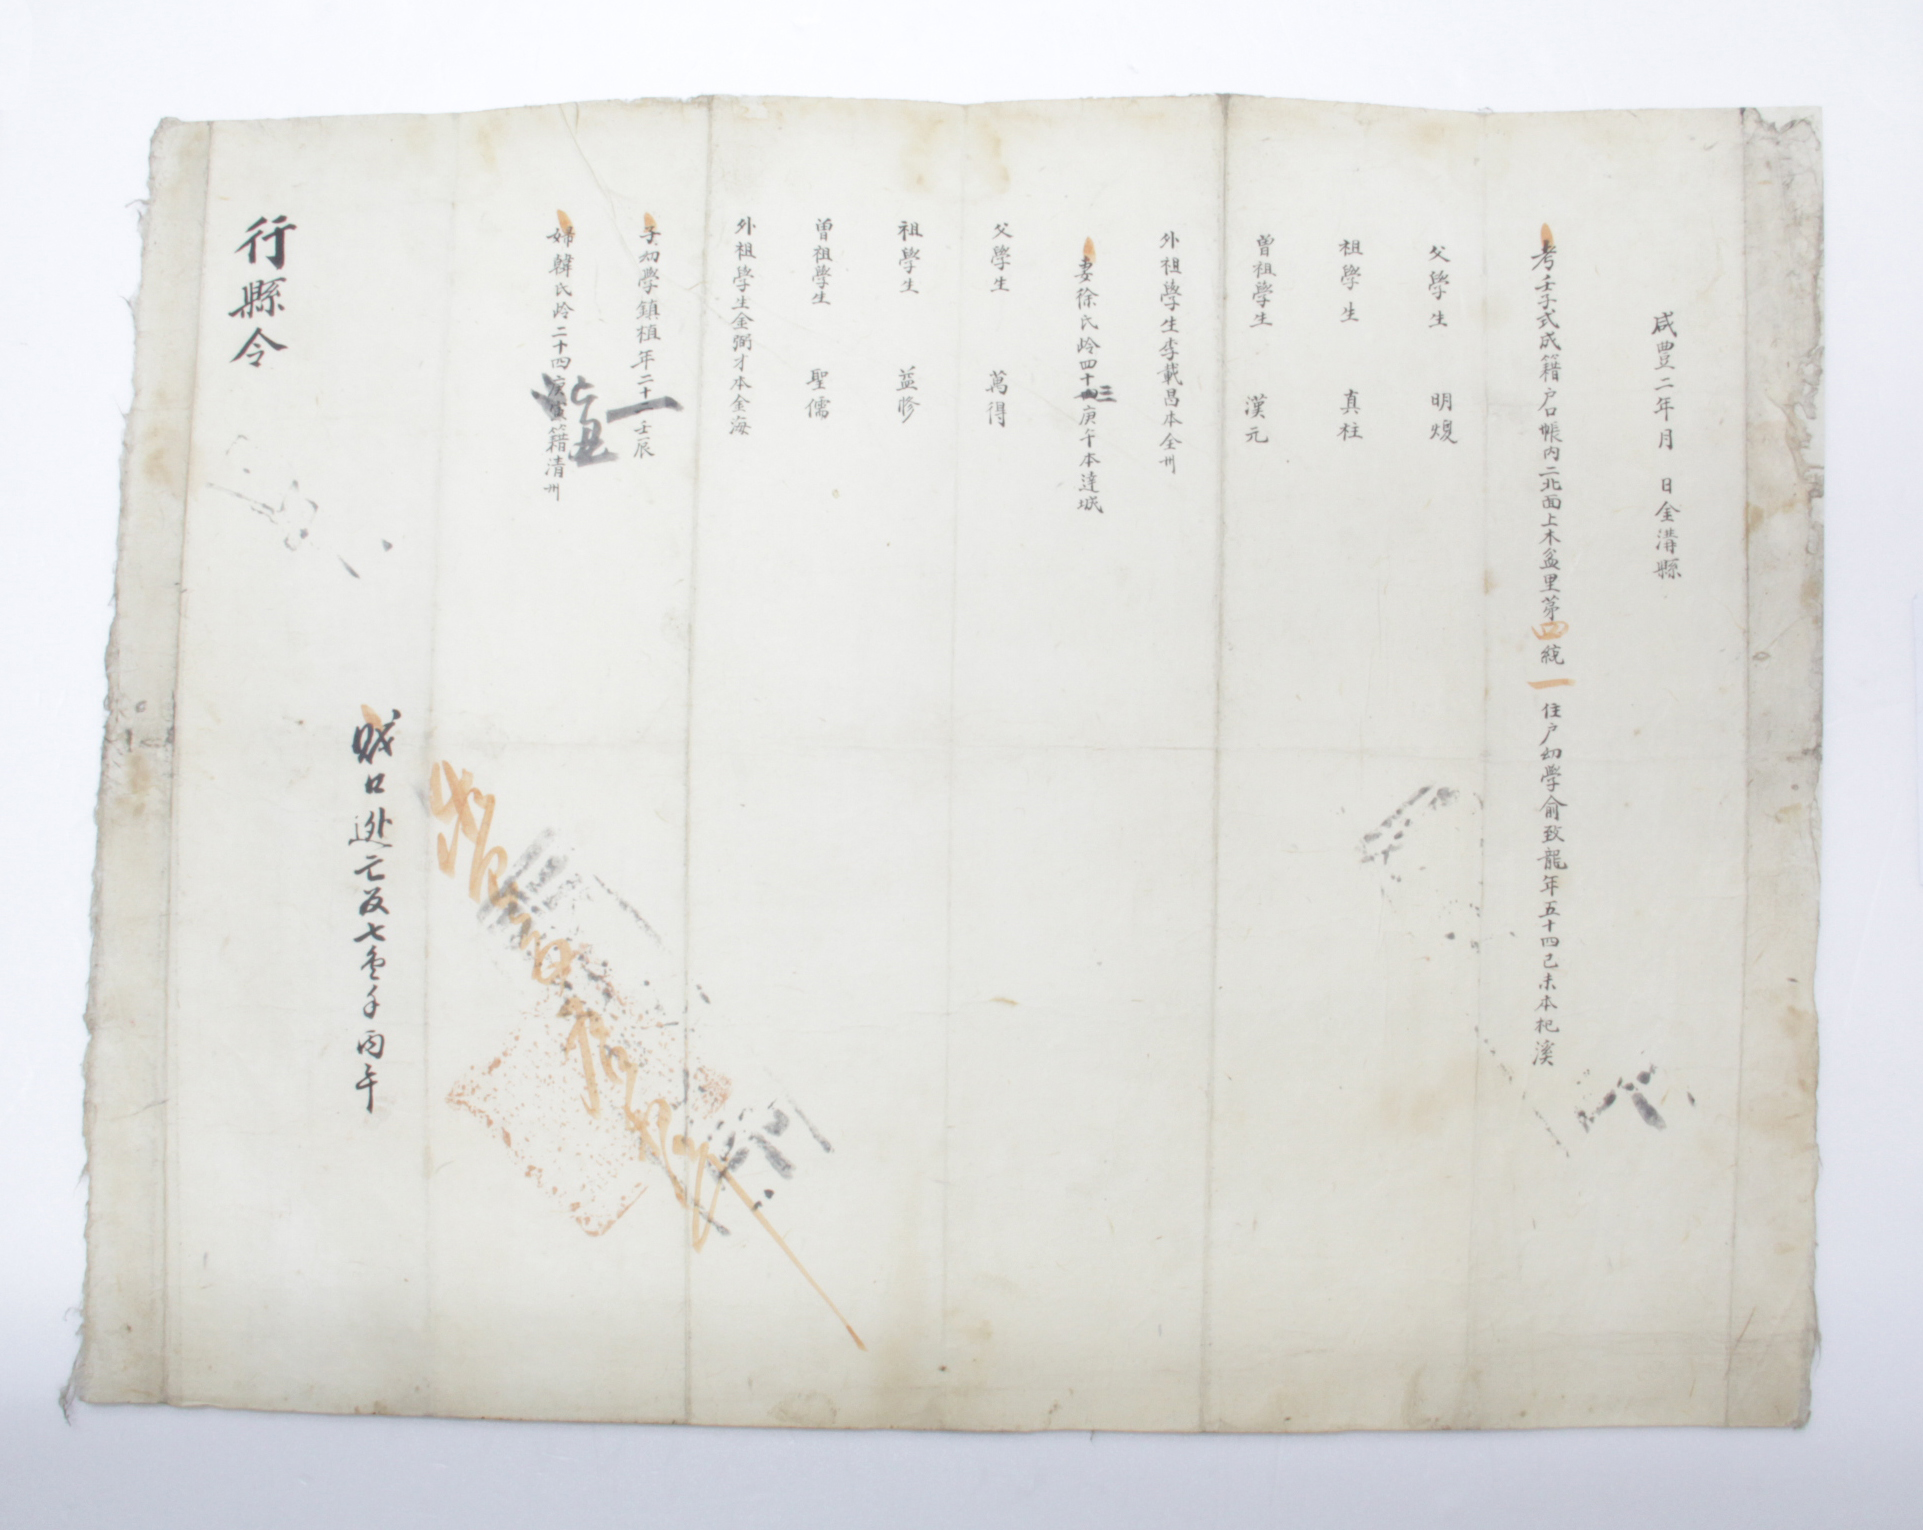 咸豊二年月 日金溝縣
考壬子式成籍户口帳内二北面上木盆里第四統一住户幼學俞致龍年五十四己未本杞溪
父學生 明煥
祖學生 真柱
曽祖學生 漢元
外祖學生李載昌本全州
妻徐氏岭四十三庚午本達城
父學生 萬得
祖學生 益修
曽祖學生 聖儒
外祖學生金弼才本金海
子幼學鎮植年二十一壬辰
婦韓氏岭二十四丑籍清州
賊口逃亡 七 丙午
行縣令